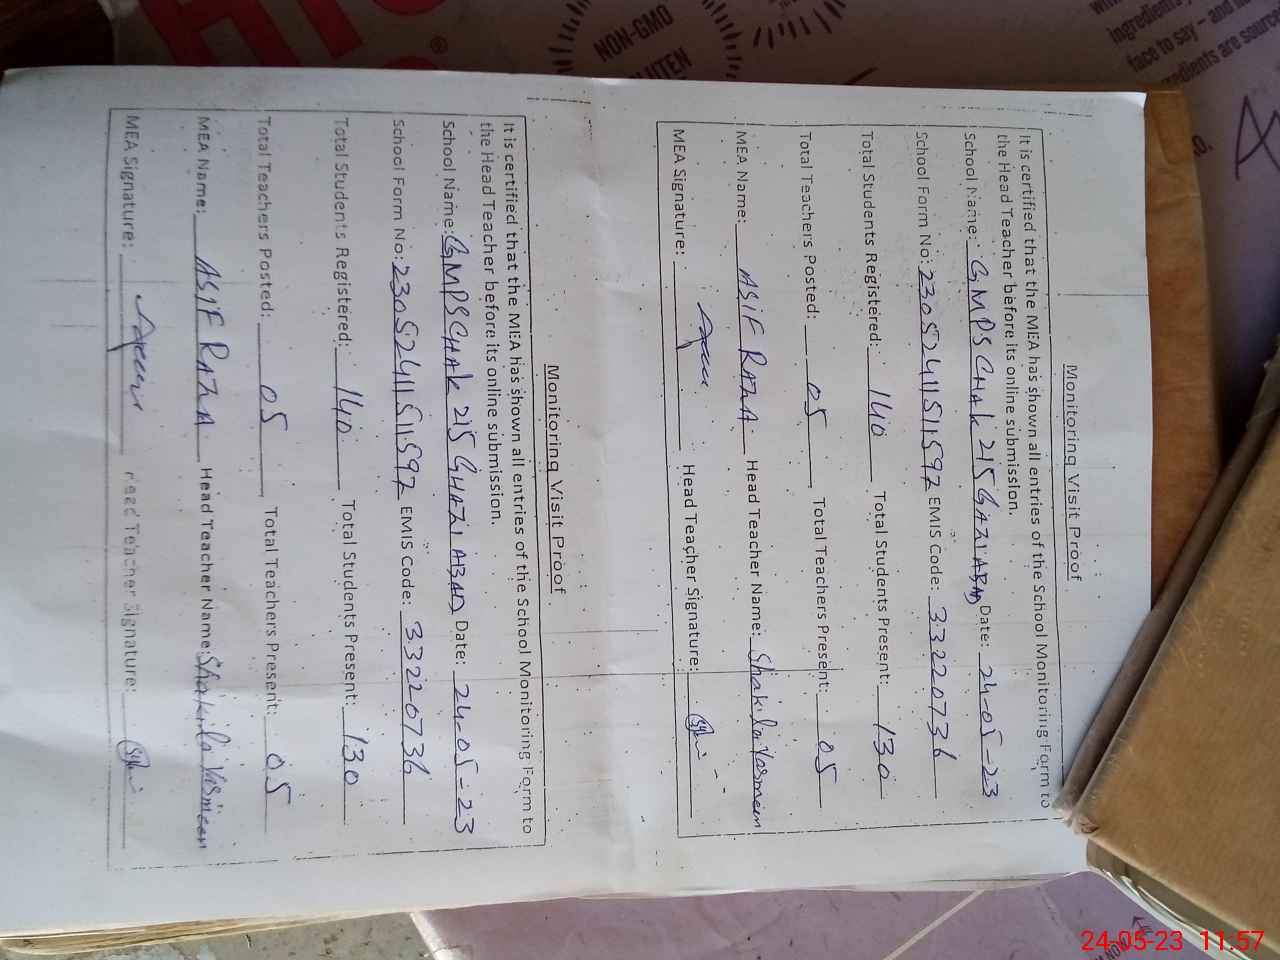 Monitoring Visit Proof
It is certified that the MEA has shown all entries of the School Monitoring Form to
the Head Teacher before its online submission.
School Name: GMPS CHAK 215 GAZIABAD Date: 24-05-23
School Form No: 23052411511592 EMIS Code: 33220736
Total Students Registered: 140 Total Students Present: 130
Total Teachers Posted: 05 Total Teachers Present: 05
MEA Name: ASIF RAZA Head Teacher Name: Shakila Yasmeen
MEA Signature: Head Teacher Signature:
Monitoring Visit Proof
It is certified that the MEA has shown all entries of the School Monitoring Form to
the Head Teacher before its online submission.
School Name: GMPS CHAK 215 GHAZIABAD Date: 24-05-23
School Form No: 23052411511592 EMIS Code: 33220736
Total Students Registered: 140 Total Students Present: 130
Total Teachers Posted: 05 Total Teachers Present: 05
MEA Name: ASIF RAZA Head Teacher Name: Shakila Yasmeen
MEA Signature: Head Teacher Signature:
NON-GMO
GLUTEN
face to say – and
24-05-23 11:57